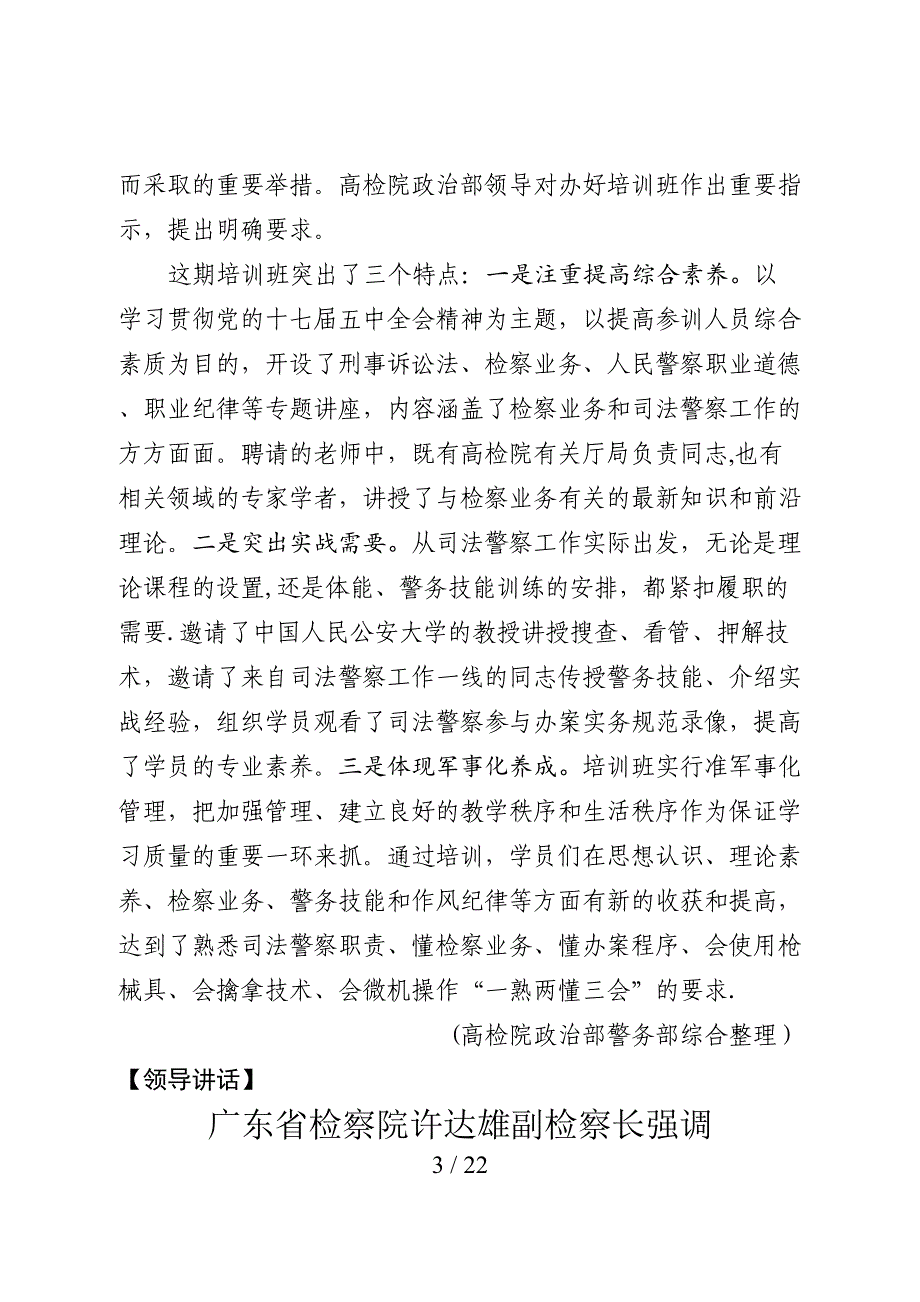 而采取的重要举措。高检院政治部领导对办好培训班作出重要指
示，提出明确要求。
这期培训班突出了三个特点：一是注重提高综合素养。以
学习贯彻党的十七届五中全会精神为主题，以提高参训人员综合
素质为目的，开设了刑事诉讼法、检察业务、人民警察职业道德
、职业纪律等专题讲座，内容涵盖了检察业务和司法警察工作的
方方面面。聘请的老师中，既有高检院有关厅局负责同志,也有
相关领域的专家学者，讲授了与检察业务有关的最新知识和前沿
理论。二是突出实战需要。从司法警察工作实际出发，无论是理
论课程的设置,还是体能、警务技能训练的安排，都紧扣履职的
需要.邀请了中国人民公安大学的教授讲授搜查、看管、押解技
术，邀请了来自司法警察工作一线的同志传授警务技能、介绍实
战经验，组织学员观看了司法警察参与办案实务规范录像，提高
了学员的专业素养。三是体现军事化养成。培训班实行准军事化
管理，把加强管理、建立良好的教学秩序和生活秩序作为保证学
习质量的重要一环来抓。通过培训，学员们在思想认识、理论素
养、检察业务、警务技能和作风纪律等方面有新的收获和提高，
达到了熟悉司法警察职责、懂检察业务、懂办案程序、会使用枪
械具、会擒拿技术、会微机操作“一熟两懂三会”的要求.
(高检院政治部警务部综合整理）
【领导讲话】
广东省检察院许达雄副检察长强调
3 / 22